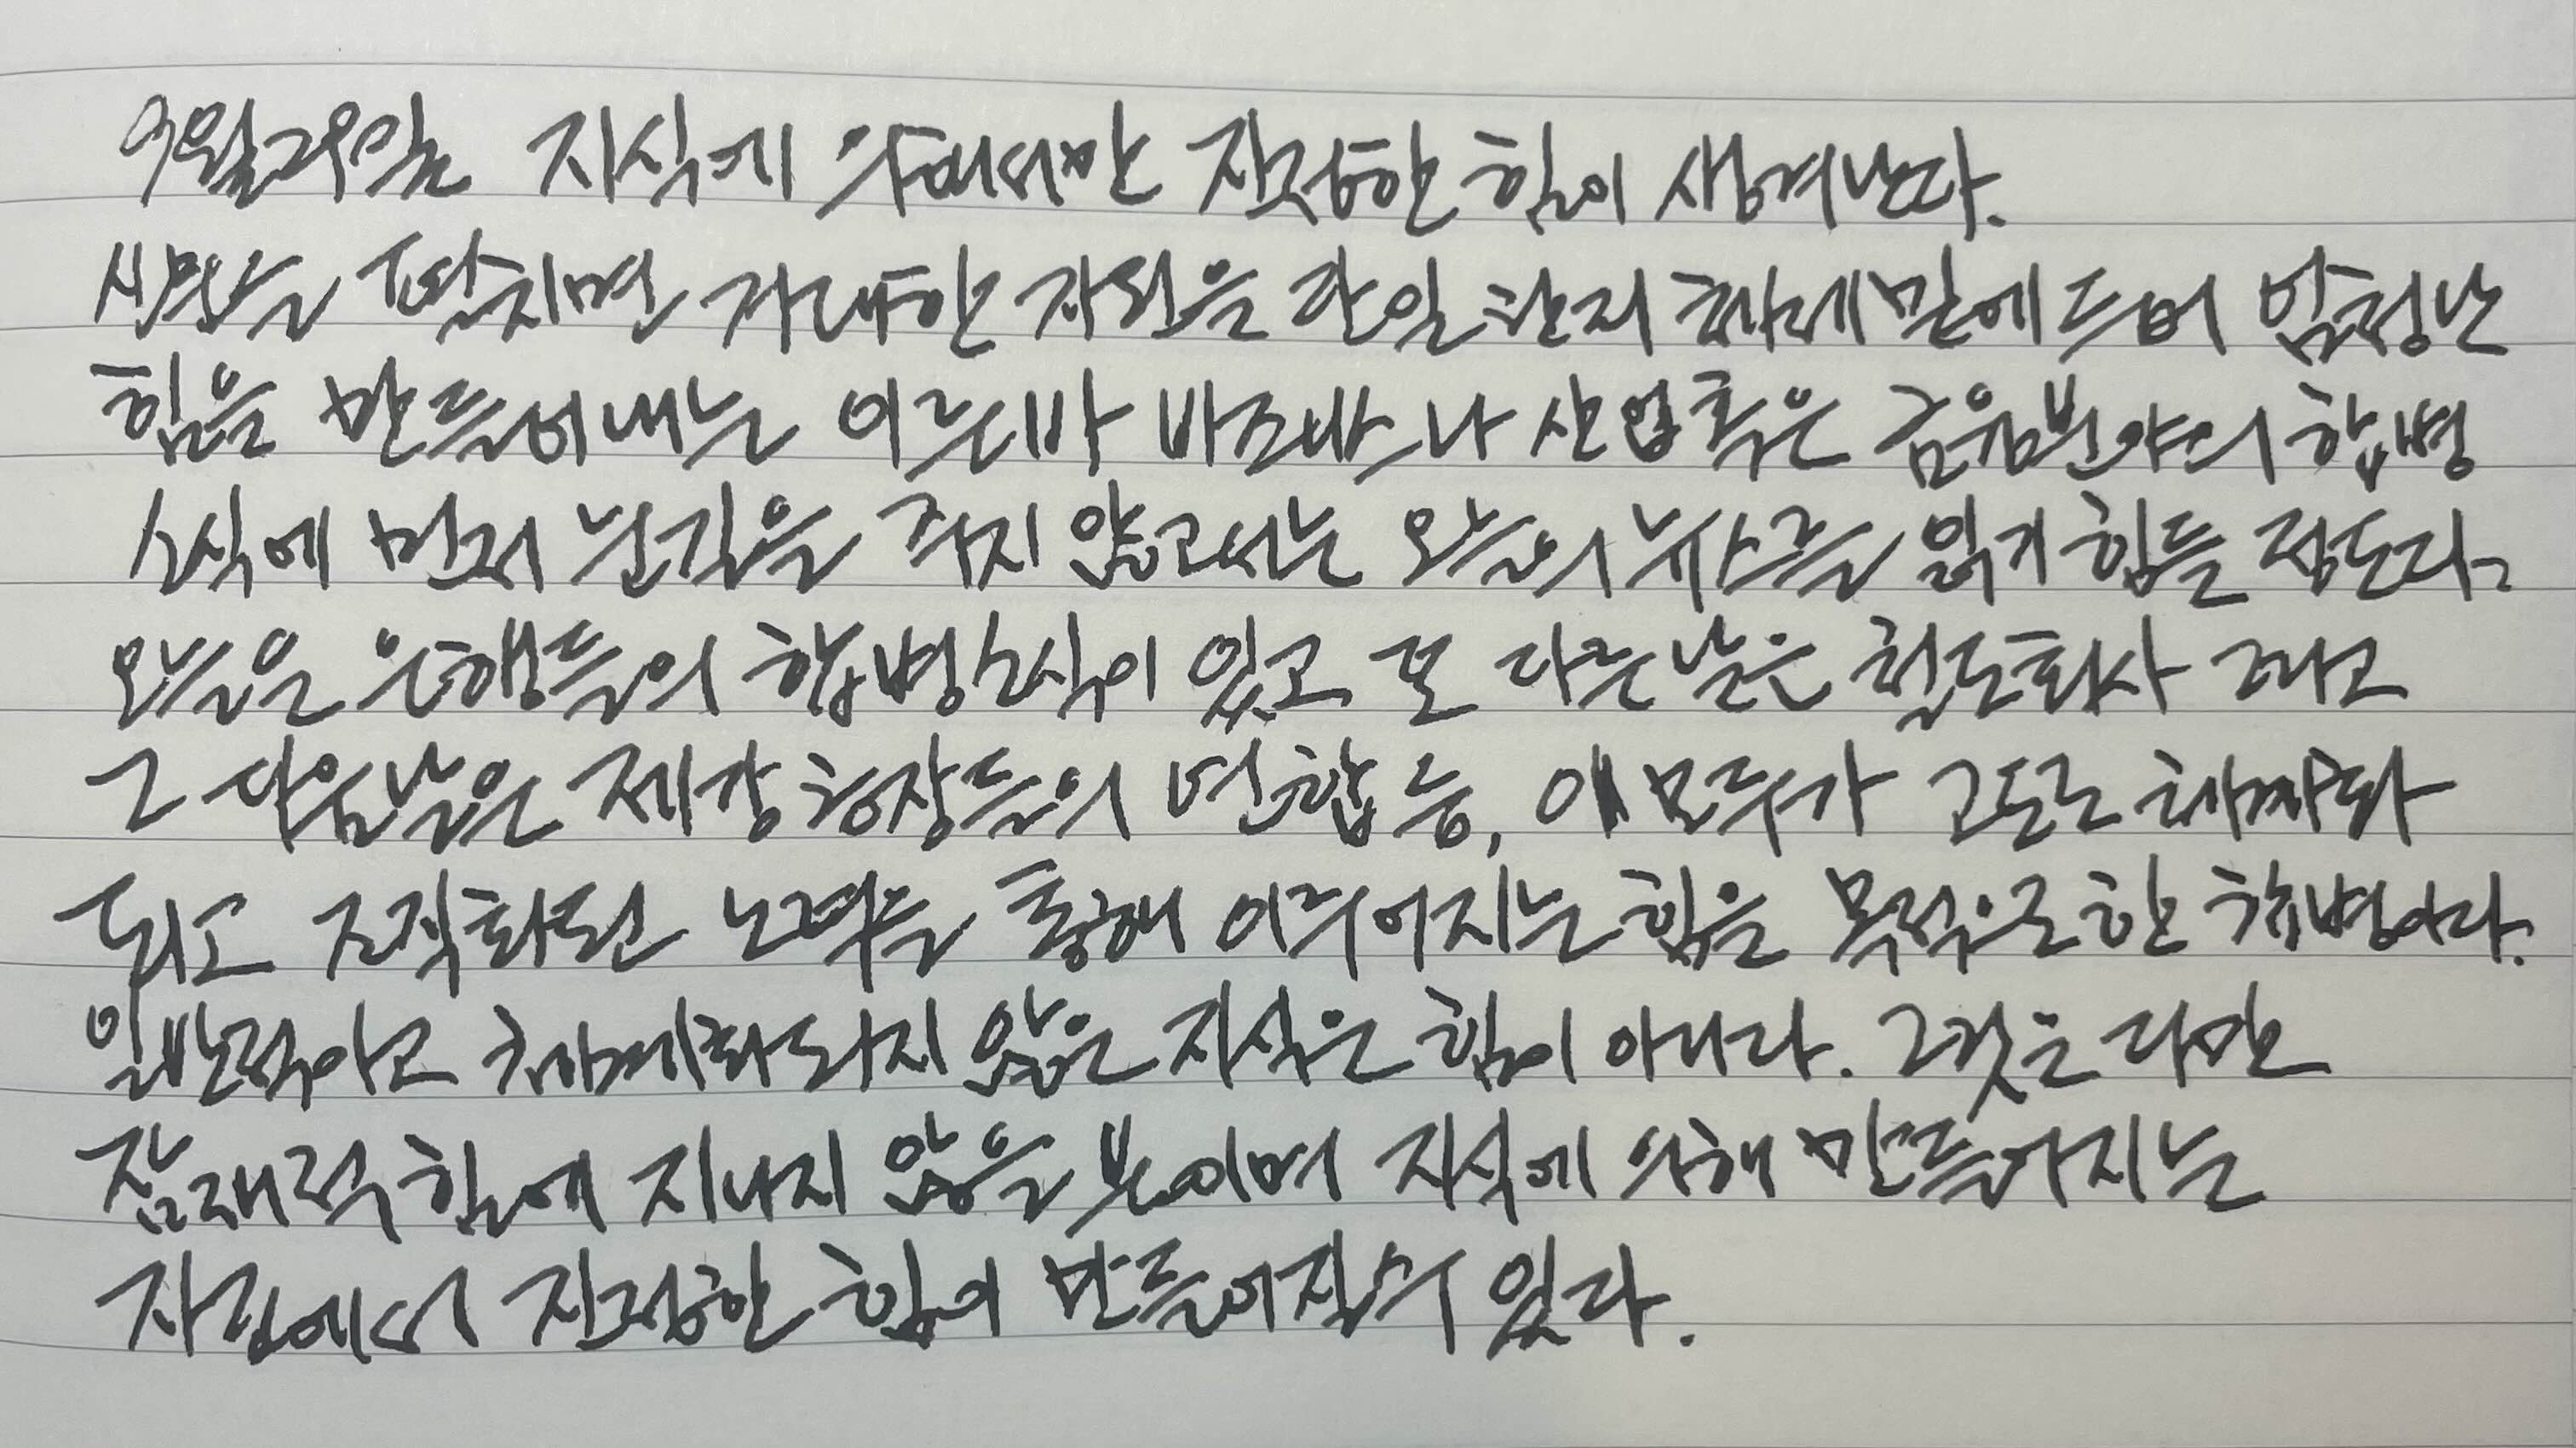 9월29일 지식에 의해서만 진정한 힘이 생겨난다.
신문을 펼치면 거대한 자원을 단일 관리 체제 밑에 두어 엄청난
힘을 만들어 내는 이른바 나 산업 혹은 금융분야의 합병
소식에 먼저 눈길을 주지 않고서는 오늘의 뉴스를 읽기 힘들 정도다.
오늘은 은행들의 합병소식이 있고 또 다른 날은 철도회사 그리고
그 다음날은 제강 공장들의 연합 등, 이 모두가 고도로 체계화
되고 조직화된 노력을 통해 이루어지는 힘을 목적으로 한 합병이다.
일반적이고 체계화되지 않은 지식은 힘이 아니다. 그것은 다만
잠재적 힘에 지나지 않을 뿐이며 지식에 의해 만들어지는
저력에서 진정한 힘이 만들어질 수 있다.